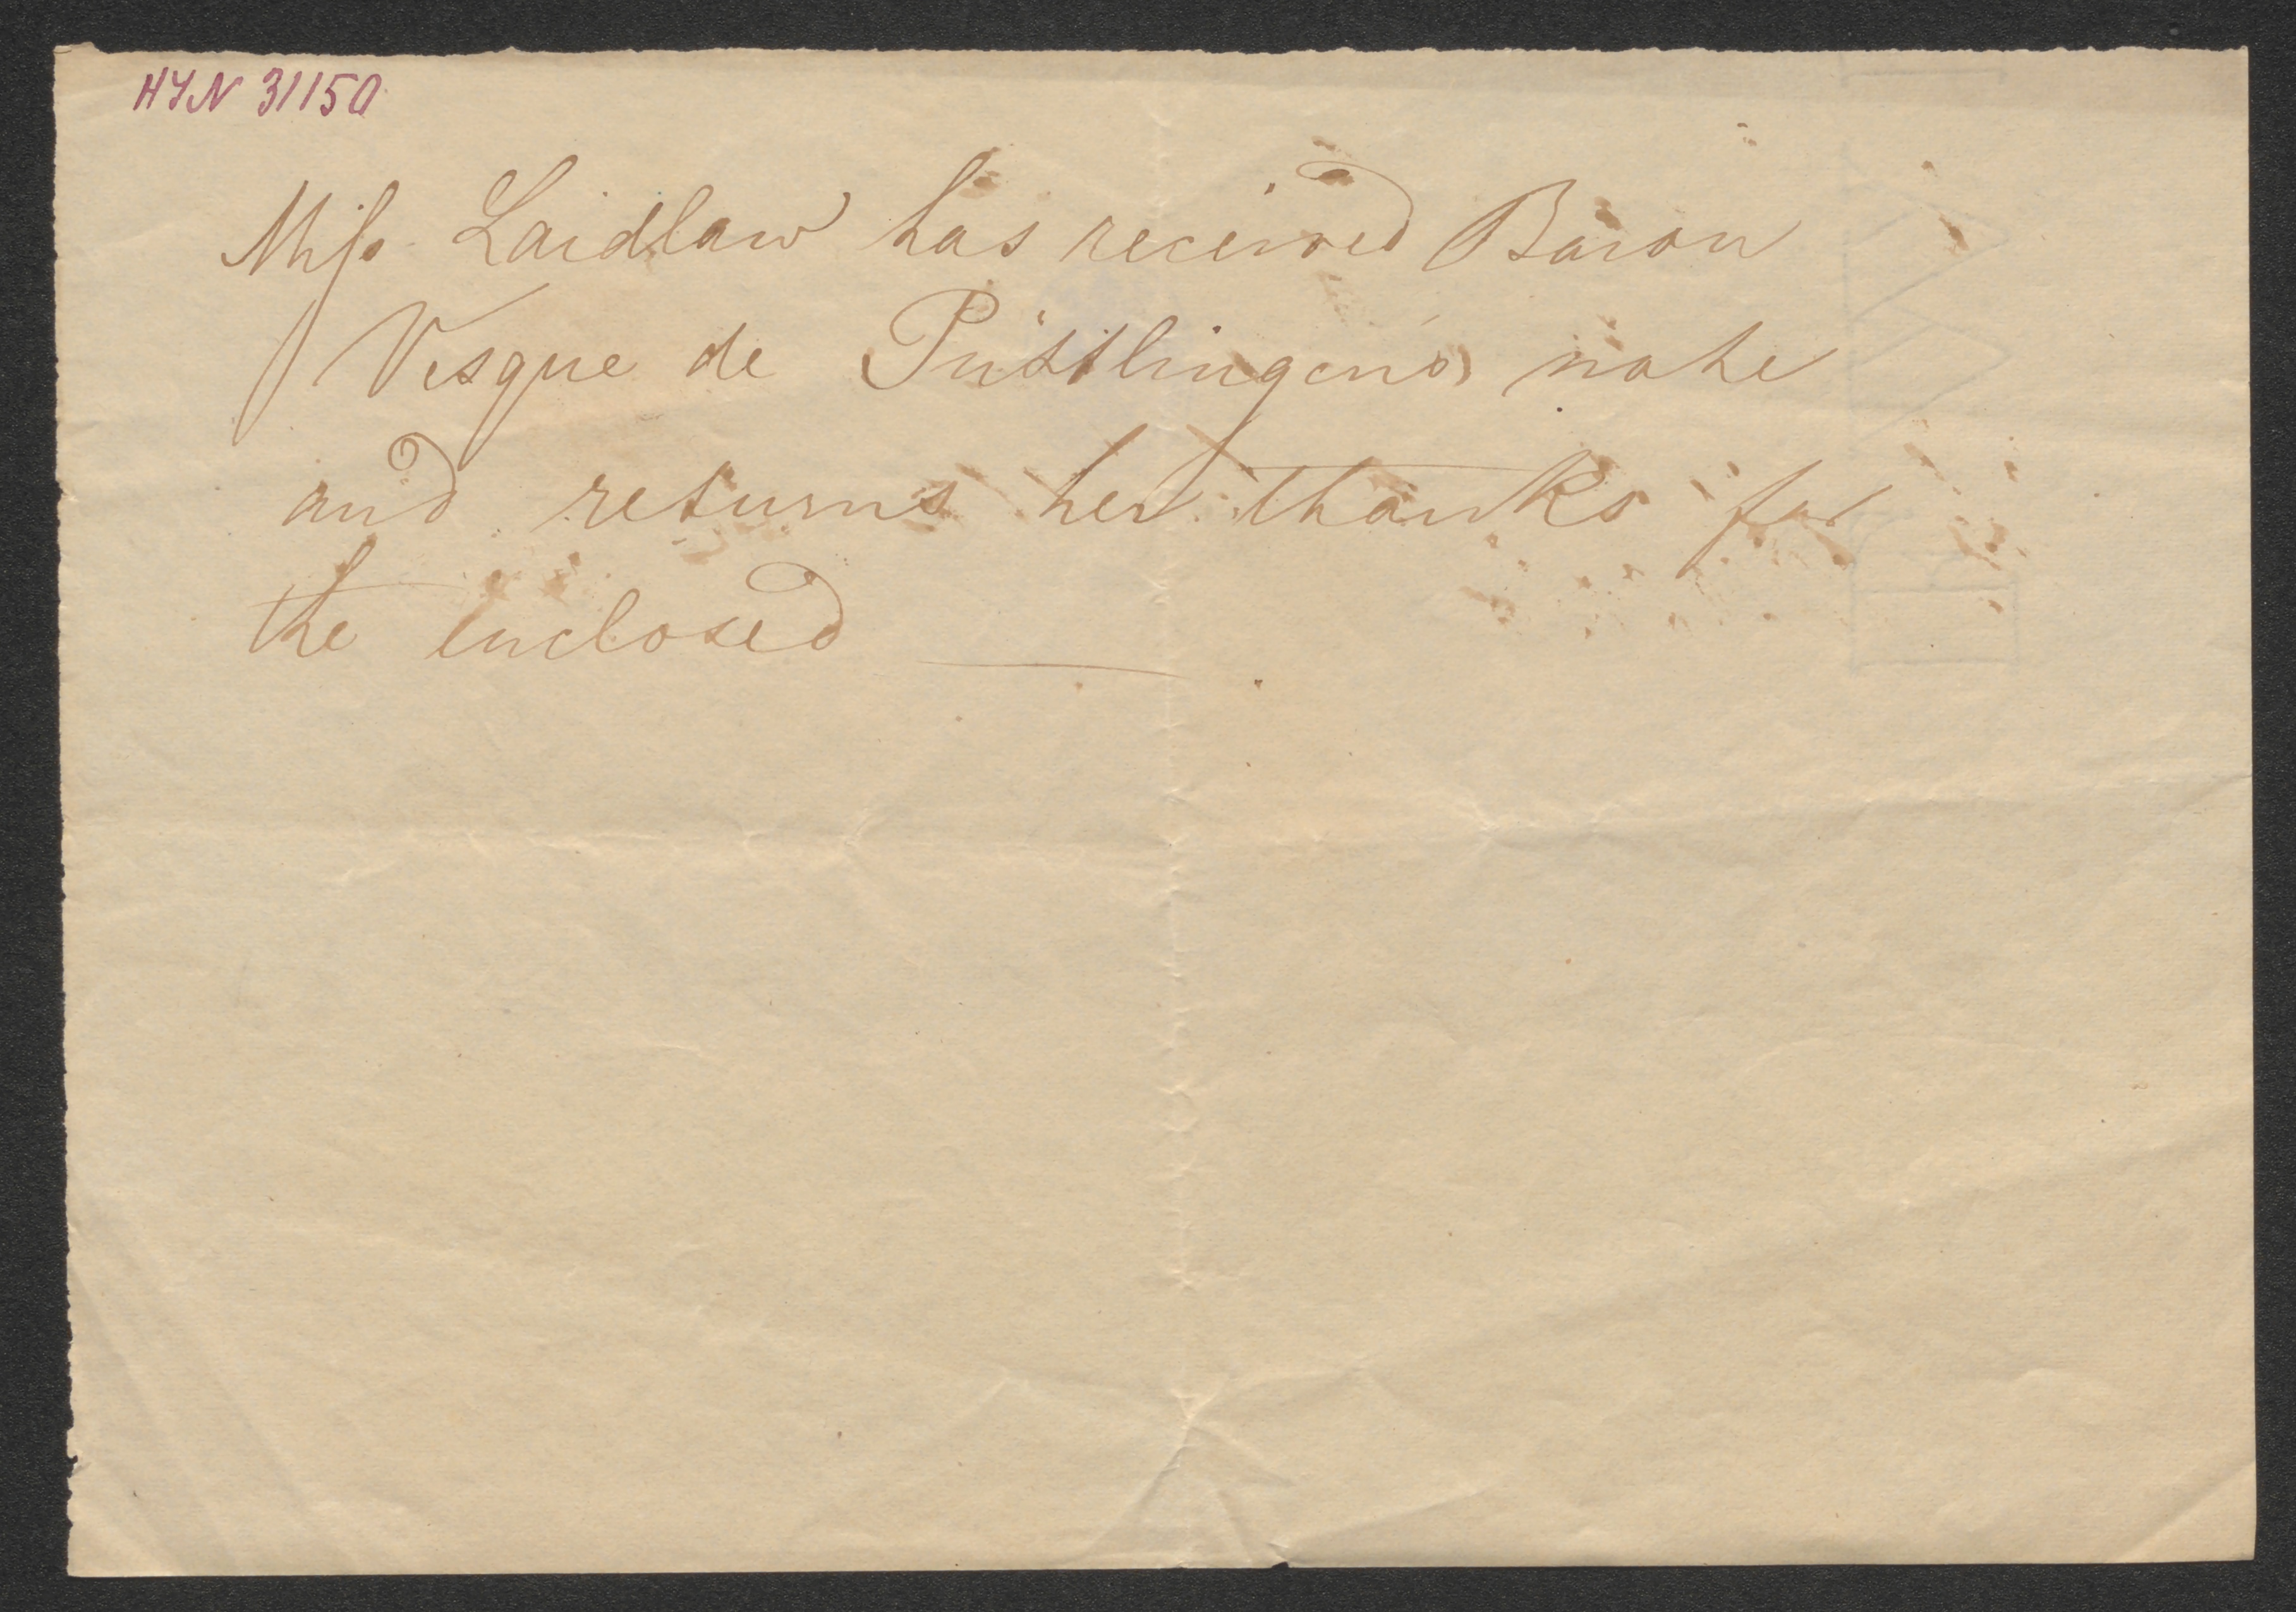 HIN 31150
Miss Laidlaw has received Baron
Vesque de Püttlingen's note
and returns her thanks for
the enclosed